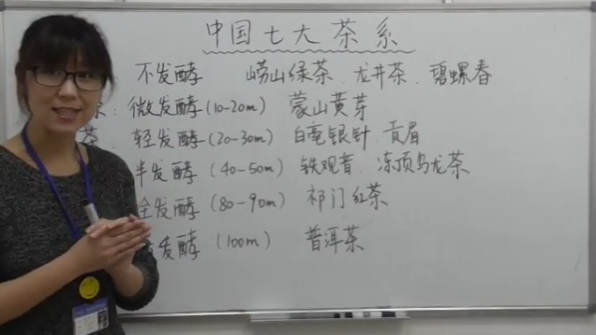 中国七大茶系
不发酵 崂山绿茶、龙井茶、碧螺春
微发酵(10-20m) 蒙山黄芽
茶: 轻发酵(20-30m) 白毫银针 贡眉
半发酵(40-50m) 铁观音、冻顶乌龙茶
全发酵(80-90m) 祁门红茶
发酵(100m) 普洱茶